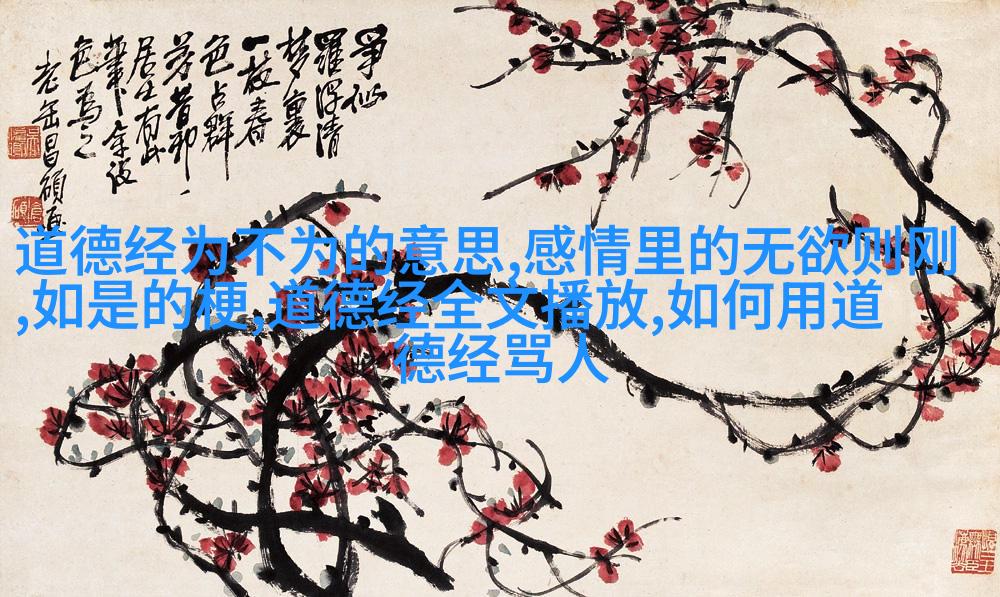 争似
羅浮清
梦裏
一枝春
色占群
芳昔邪
居士有此
筆下余佐
色為之
老缶昌碩
道德经为不为的意思,感情里的无欲则刚
,如是的梗,道德经全文播放,如何用道
德经骂人